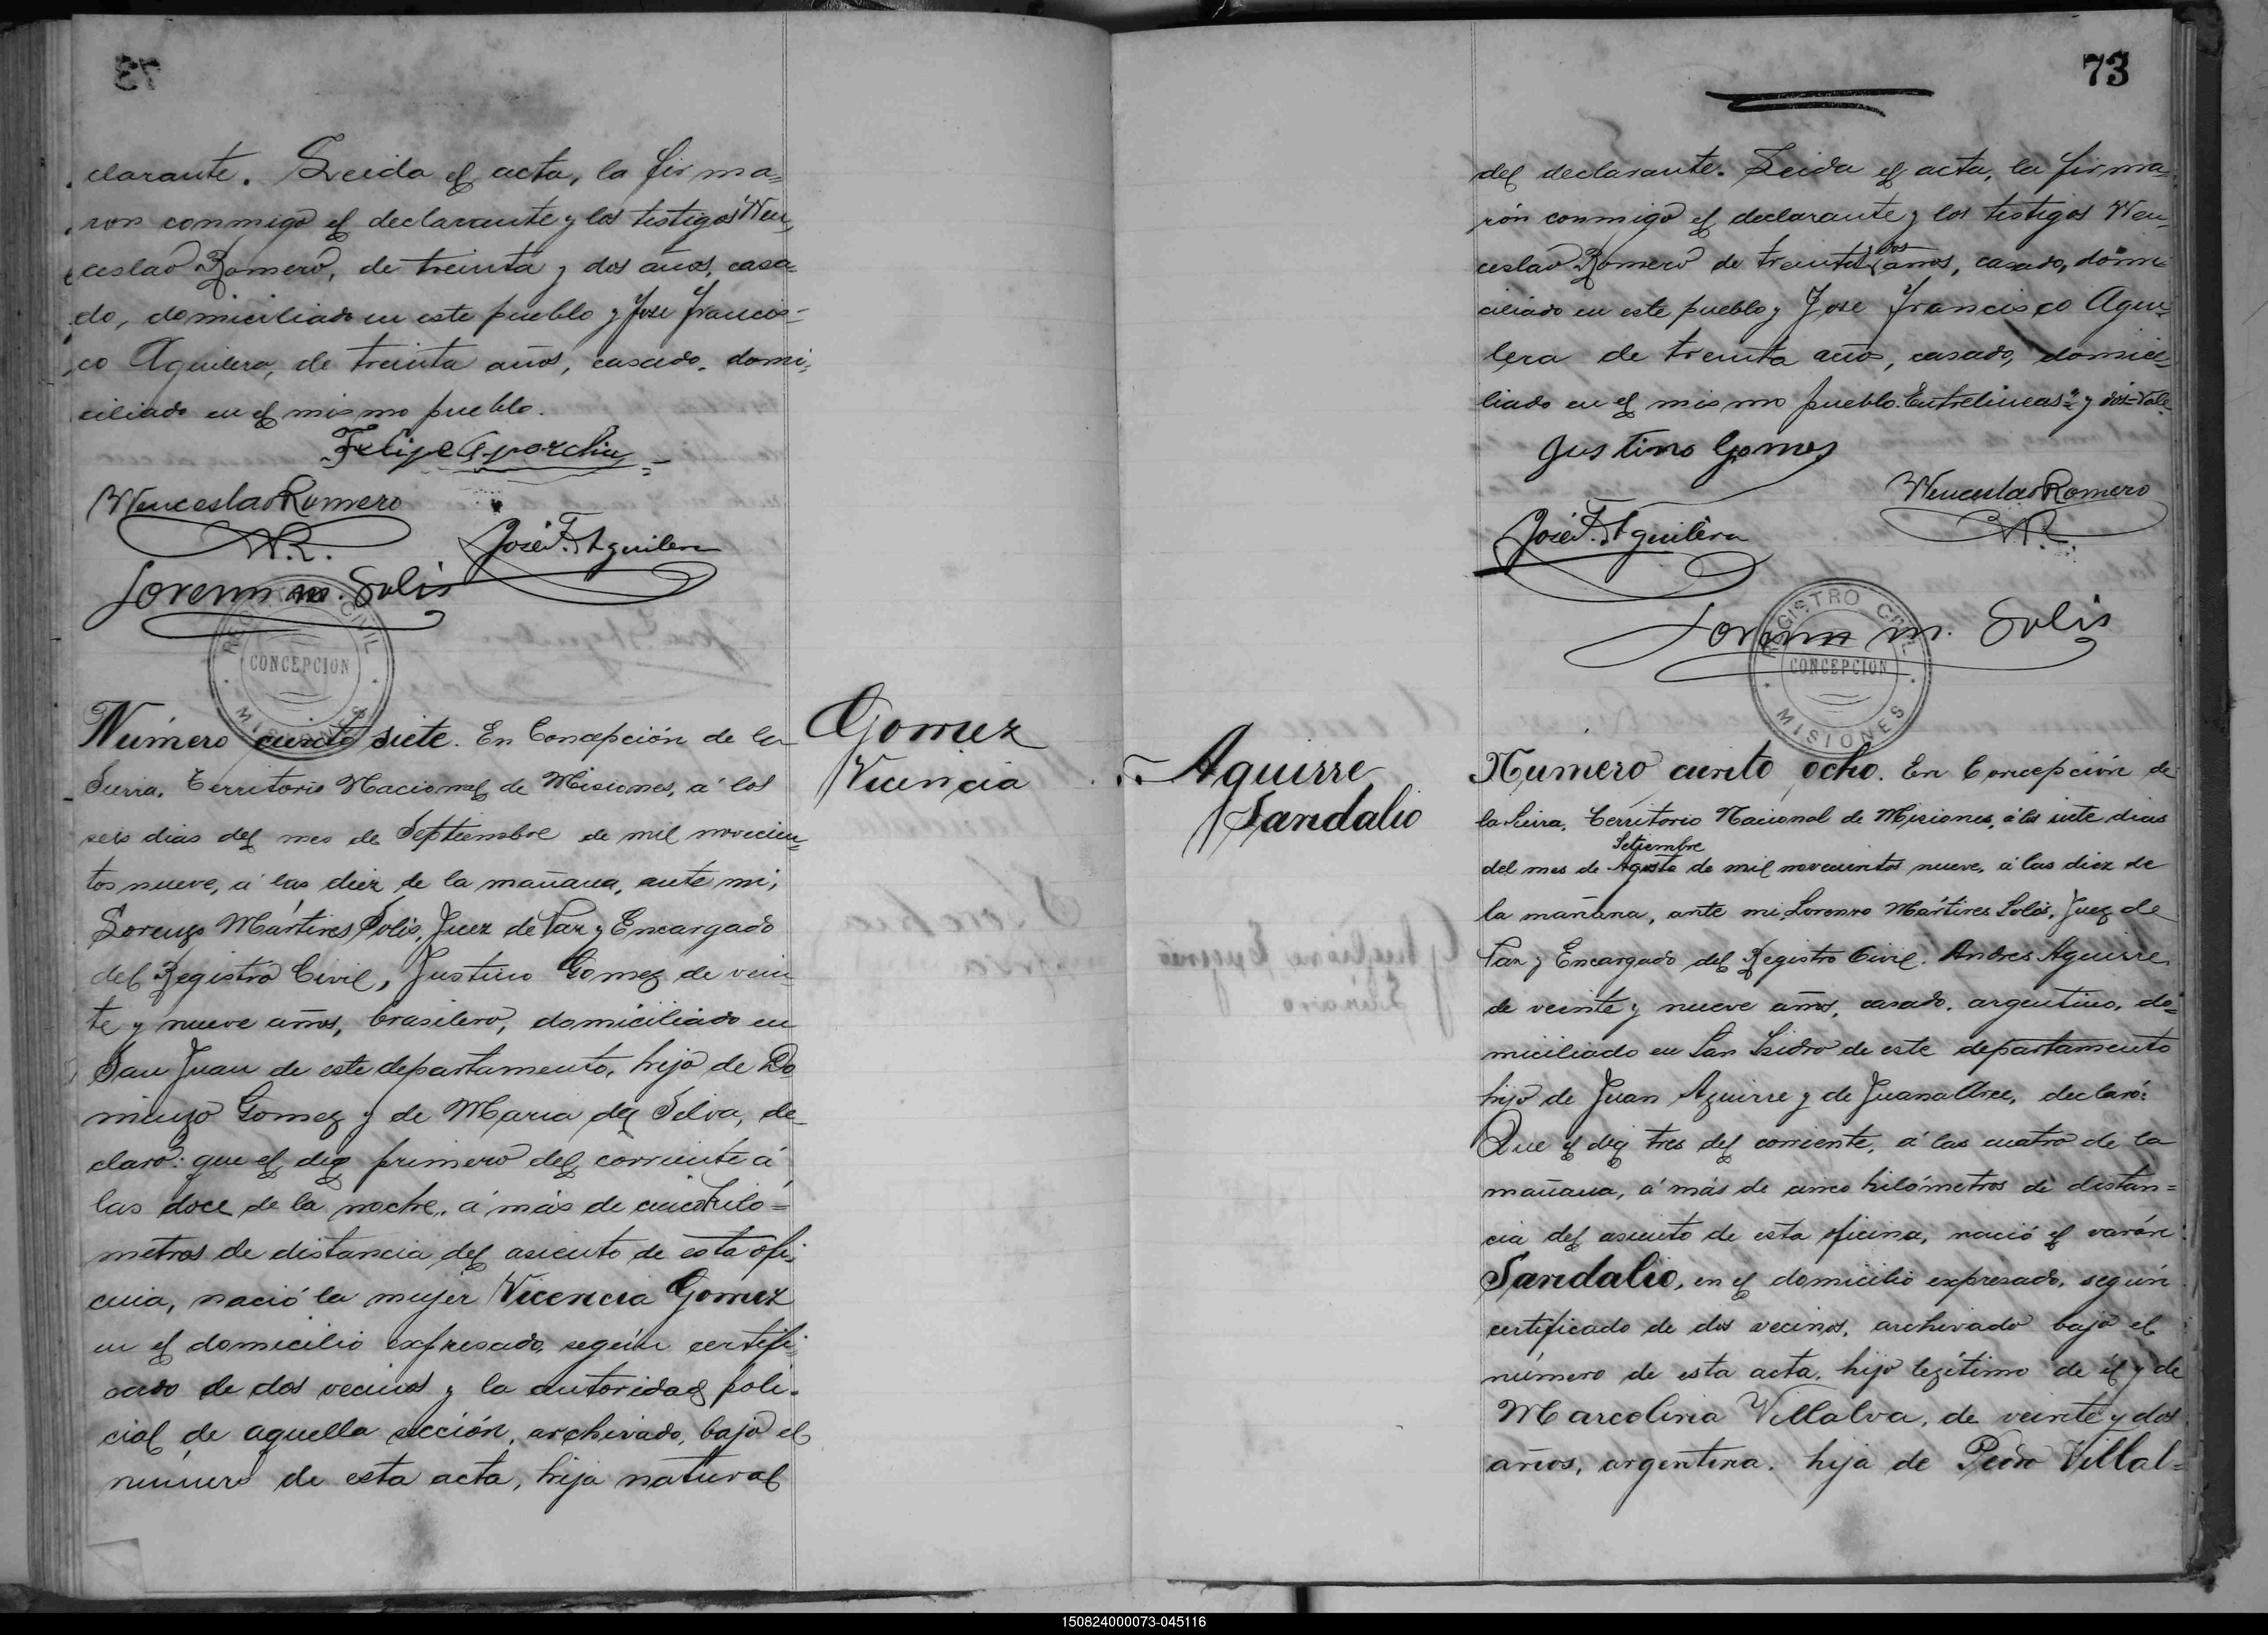 clarante. Leida el acta, la firma=
ron conmigo el declarante y los testigos Wen
ceslao Romero, de treinta y dos años, casa=
do, domiciliado en este pueblo y Jose Francis=
co Aguilera, de treinta años, casado, domi=
ciliado en el mismo pueblo.
Felipe Aparchin
Wenceslao Romero
W.R.
José F. Aguilera
Lorenzo M. Solis
REGISTRO CIVIL
CONCEPCION
MISIONES
Número ciento siete. En Concepción de la
Sierra, Territorio Nacional de Misiones, á los
seis dias del mes de Septiembre de mil novecien=
tos nueve, á las diez de la mañana, ante mi,
Lorenzo Mártires Solis, Juez de Paz y Encargado
del Registro Civil, Justino Gomez de vein=
te y nueve años, brasilero, domiciliado en
San Juan de este departamento, hijo de Do
mingo Gomez y de Maria da Silva, de
claró: que el dia primero del corriente á
las doce de la noche, á más de cinco kiló=
metros de distancia del asiento de esta ofi=
cina, nació la mujer Vicencia Gomez
en el domicilio expresado, según certifi=
cado de dos vecinos y la autoridad poli=
cial de aquella sección, archivado, bajo el
número de esta acta, hija natural
Gomez
Vicencia
73
Aguirre
Sandalio
del declarante. Leida el acta, la firma=
rón conmigo el declarante y los testigos Wen=
ceslao Romero de treinta y dos años, casado, domi=
ciliado en este pueblo y Jose Francisco Agui=
lera de treinta años, casado, domici=
liado en el mismo pueblo. Entrelineas "y dos" Vale
Justino Gomes
Wenceslao Romero
W.R.
José F. Aguilera
Lorenzo M. Solis
REGISTRO CIVIL
CONCEPCION
MISIONES
Número ciento ocho. En Concepción de
la Sierra, Territorio Nacional de Misiones, á los siete dias
Setiembre
del mes de Agosto de mil novecientos nueve, á las diez de
la mañana, ante mi, Lorenzo Mártires Solis, Juez de
Paz y Encargado del Registro Civil. Andres Aguirre
de veinte y nueve años, casado, argentino, do=
miciliado en San Isidro de este departamento
hijo de Juan Aguirre y de Juana Arce, declaró:
Que el dia tres del corriente, á las cuatro de la
mañana, á más de cinco kilómetros de distan=
cia del asiento de esta oficina, nació el varón
Sandalio, en el domicilio expresado, según
certificado de dos vecinos, archivado bajo el
número de esta acta, hijo legítimo de él y de
Marcelina Villalva, de veinte y dos
años, argentina, hija de Pedro Villal=
150824000073-045116